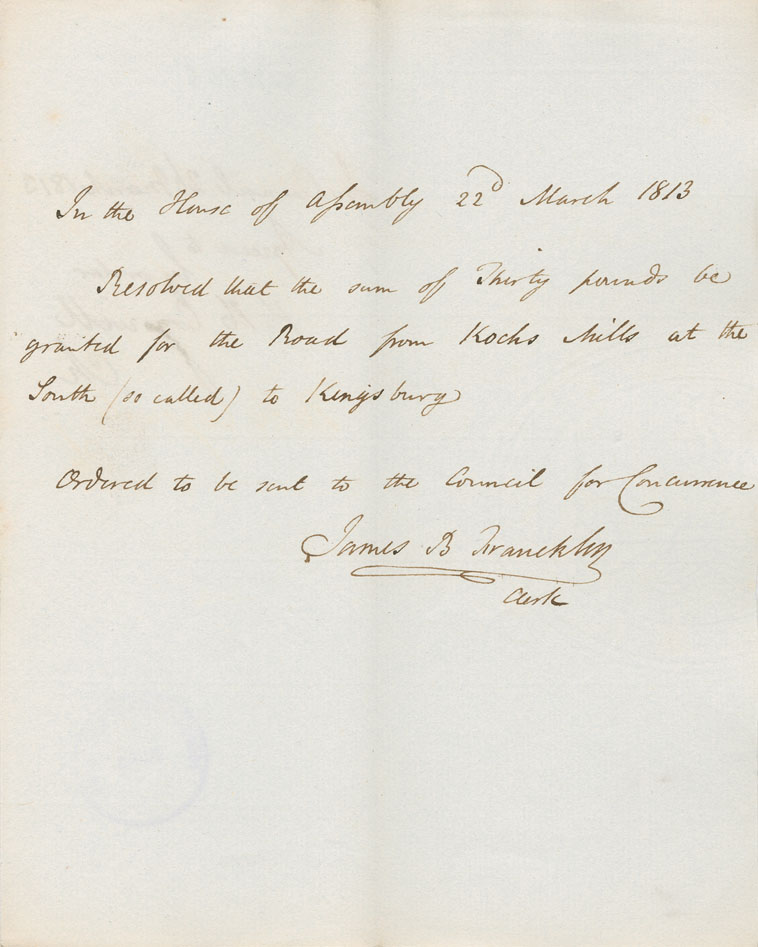 In the House of Assembly 22d March 1813
Resolved that the sum of Thirty pounds be
granted for the Road from Kochs Mills at the
South (so called) to Kingsburg
Ordered to be sent to the Council for Concurrence
James B Franckling
Clerk